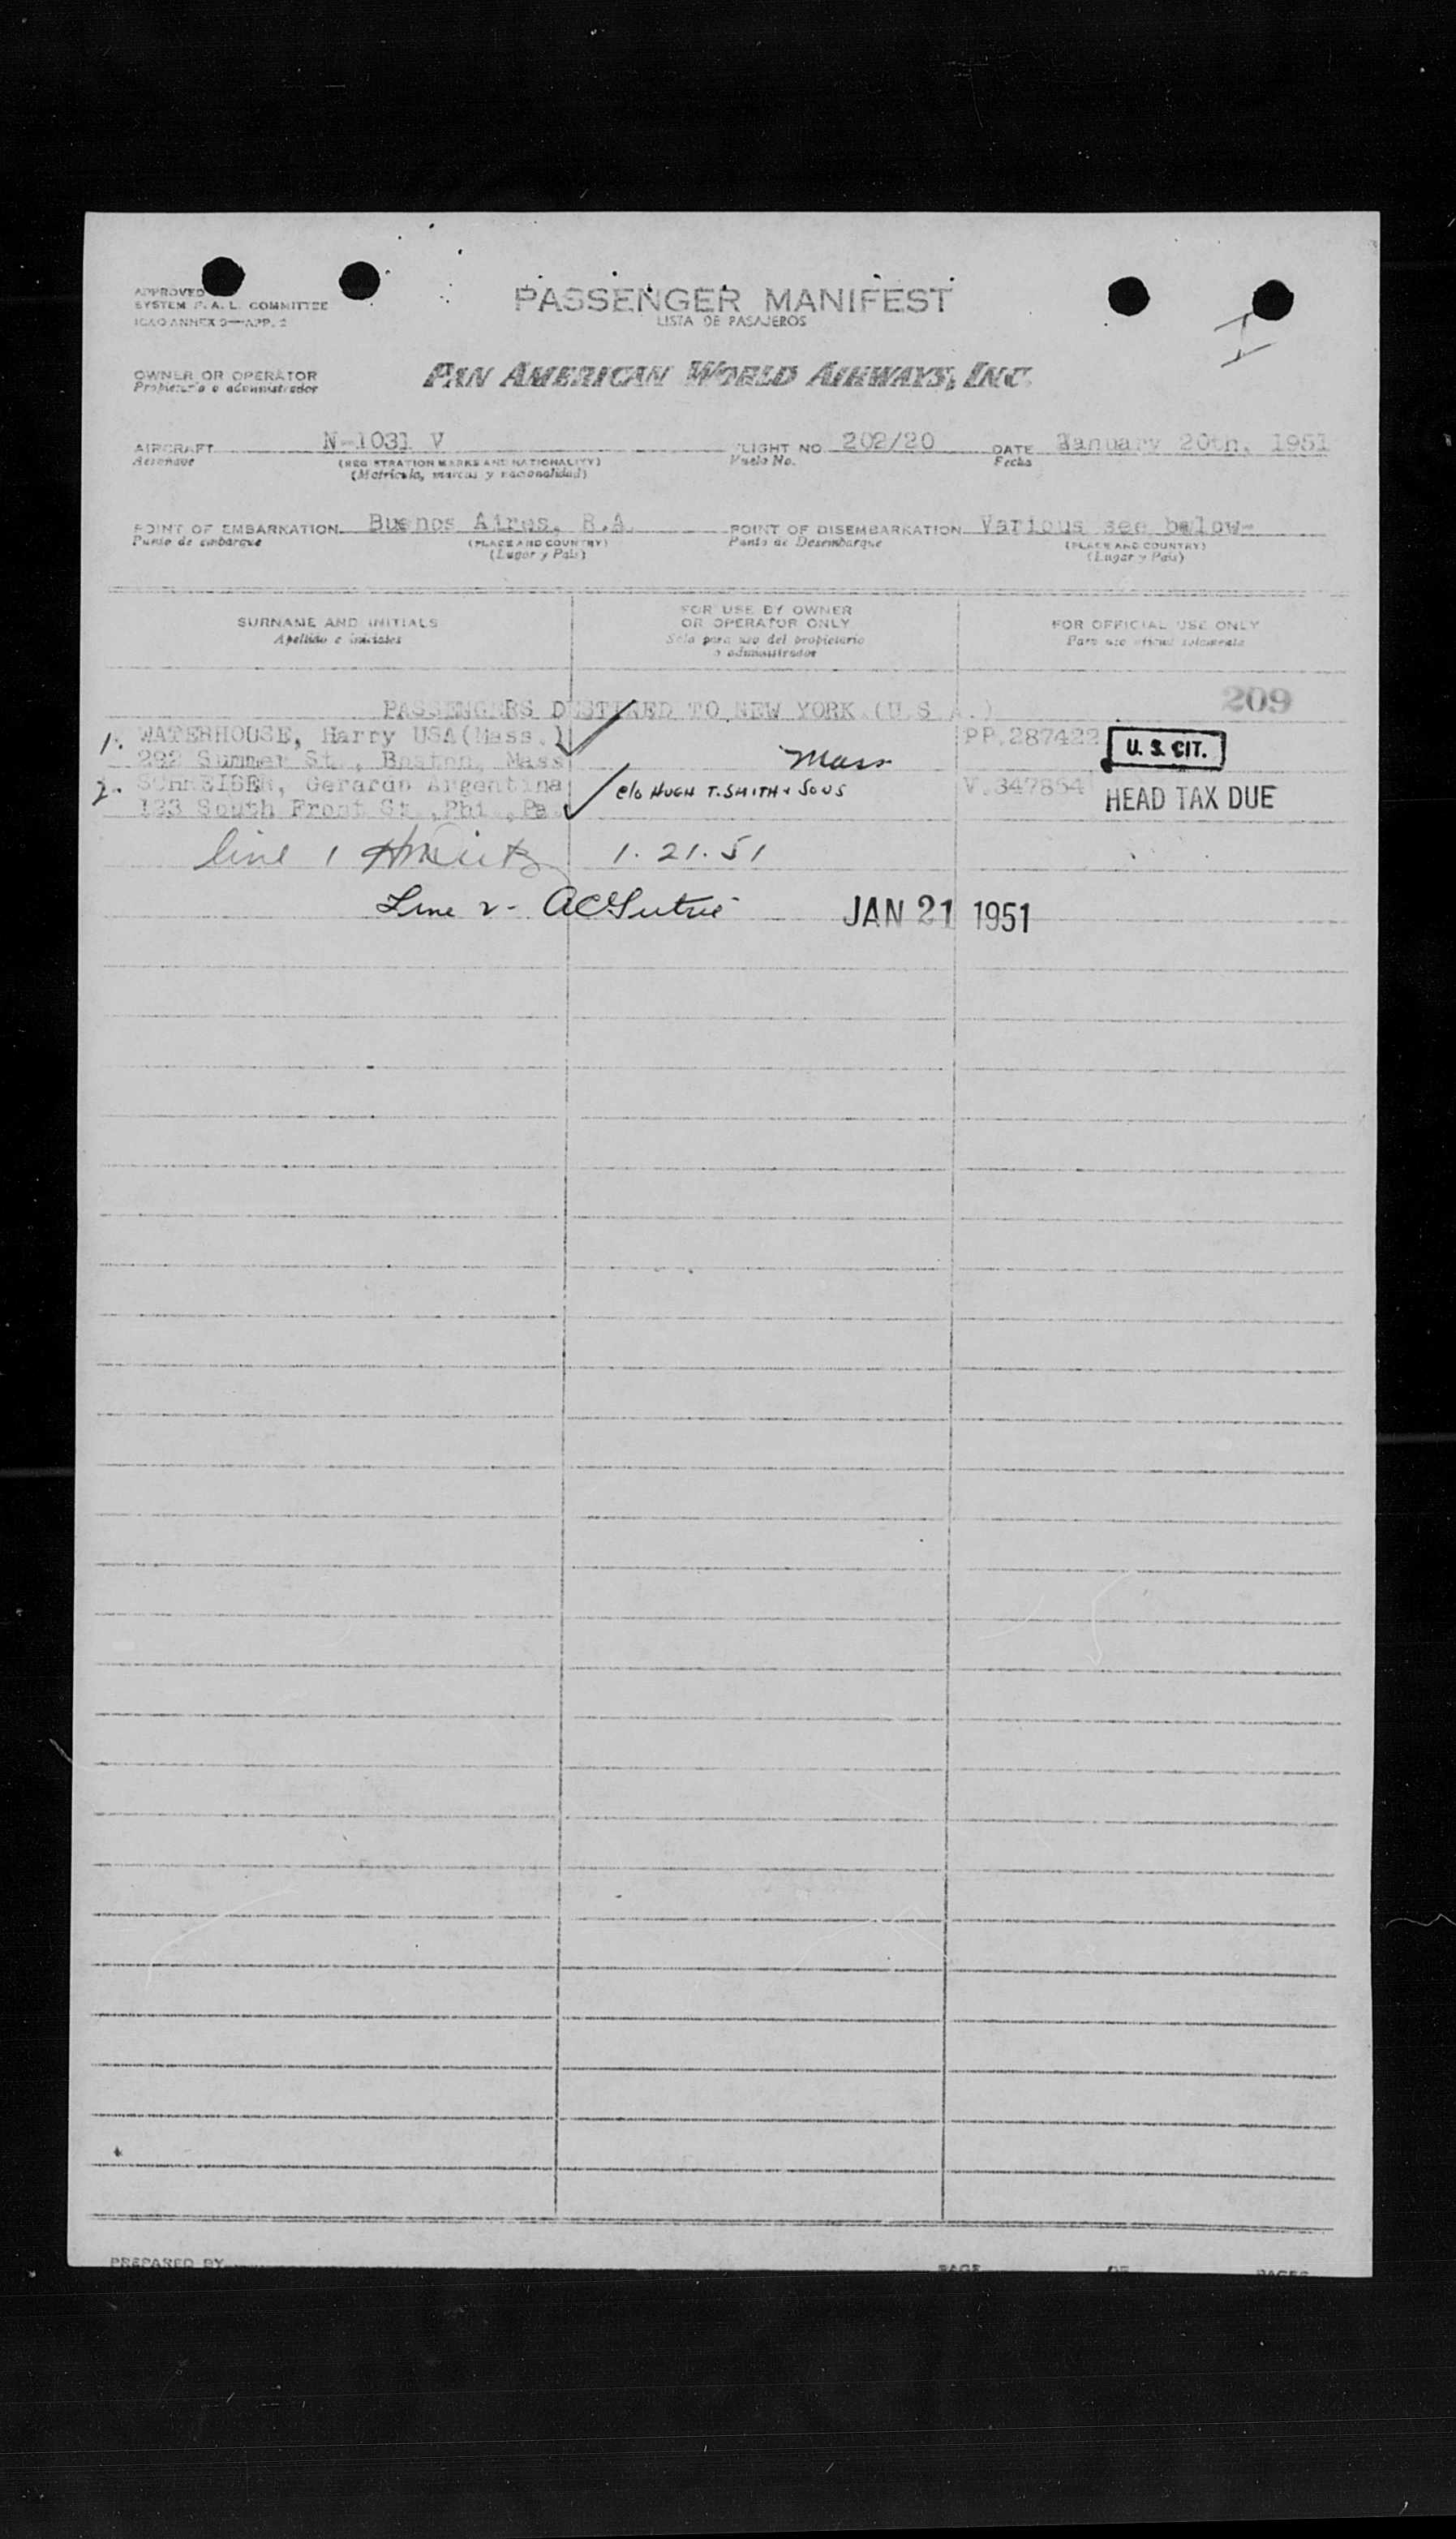 APPROVED
SYSTEM F. A. L. COMMITTEE
ICAO ANNEX 9—APP. 2
PASSENGER MANIFEST
LISTA DE PASAJEROS
OWNER OR OPERATOR
Propietario o administrador
PAN AMERICAN WORLD AIRWAYS, INC.
AIRCRAFT N-1031 V FLIGHT NO. 202/20 DATE January 20th, 1951
Aeronave (REGISTRATION MARKS AND NATIONALITY) Vuelo No. Fecha
(Matrícula, marcas y nacionalidad)
POINT OF EMBARKATION Buenos Aires, R.A. POINT OF DISEMBARKATION Various see below-
Punto de embarque (PLACE AND COUNTRY) Punto de Desembarque (PLACE AND COUNTRY)
(Lugar y País) (Lugar y País)
SURNAME AND INITIALS FOR USE BY OWNER OR OPERATOR ONLY FOR OFFICIAL USE ONLY
Apellido e iniciales Sólo para uso del propietario o administrador Para uso oficial solamente
209
PASSENGERS DESTINED TO NEW YORK (U.S.A.)
1. WATERHOUSE, Harry USA(Mass.) PP.287422 U. S. CIT.
292 Summer St., Boston, Mass Mass
2. SCHNEIDER, Gerardo Argentina c/o HUGH T. SMITH & SONS V.347854 HEAD TAX DUE
123 South Front St.,Phi.,Pa.
line 1 1.21.51
Line 2 - JAN 21 1951
PREPARED BY PAGE OF PAGES